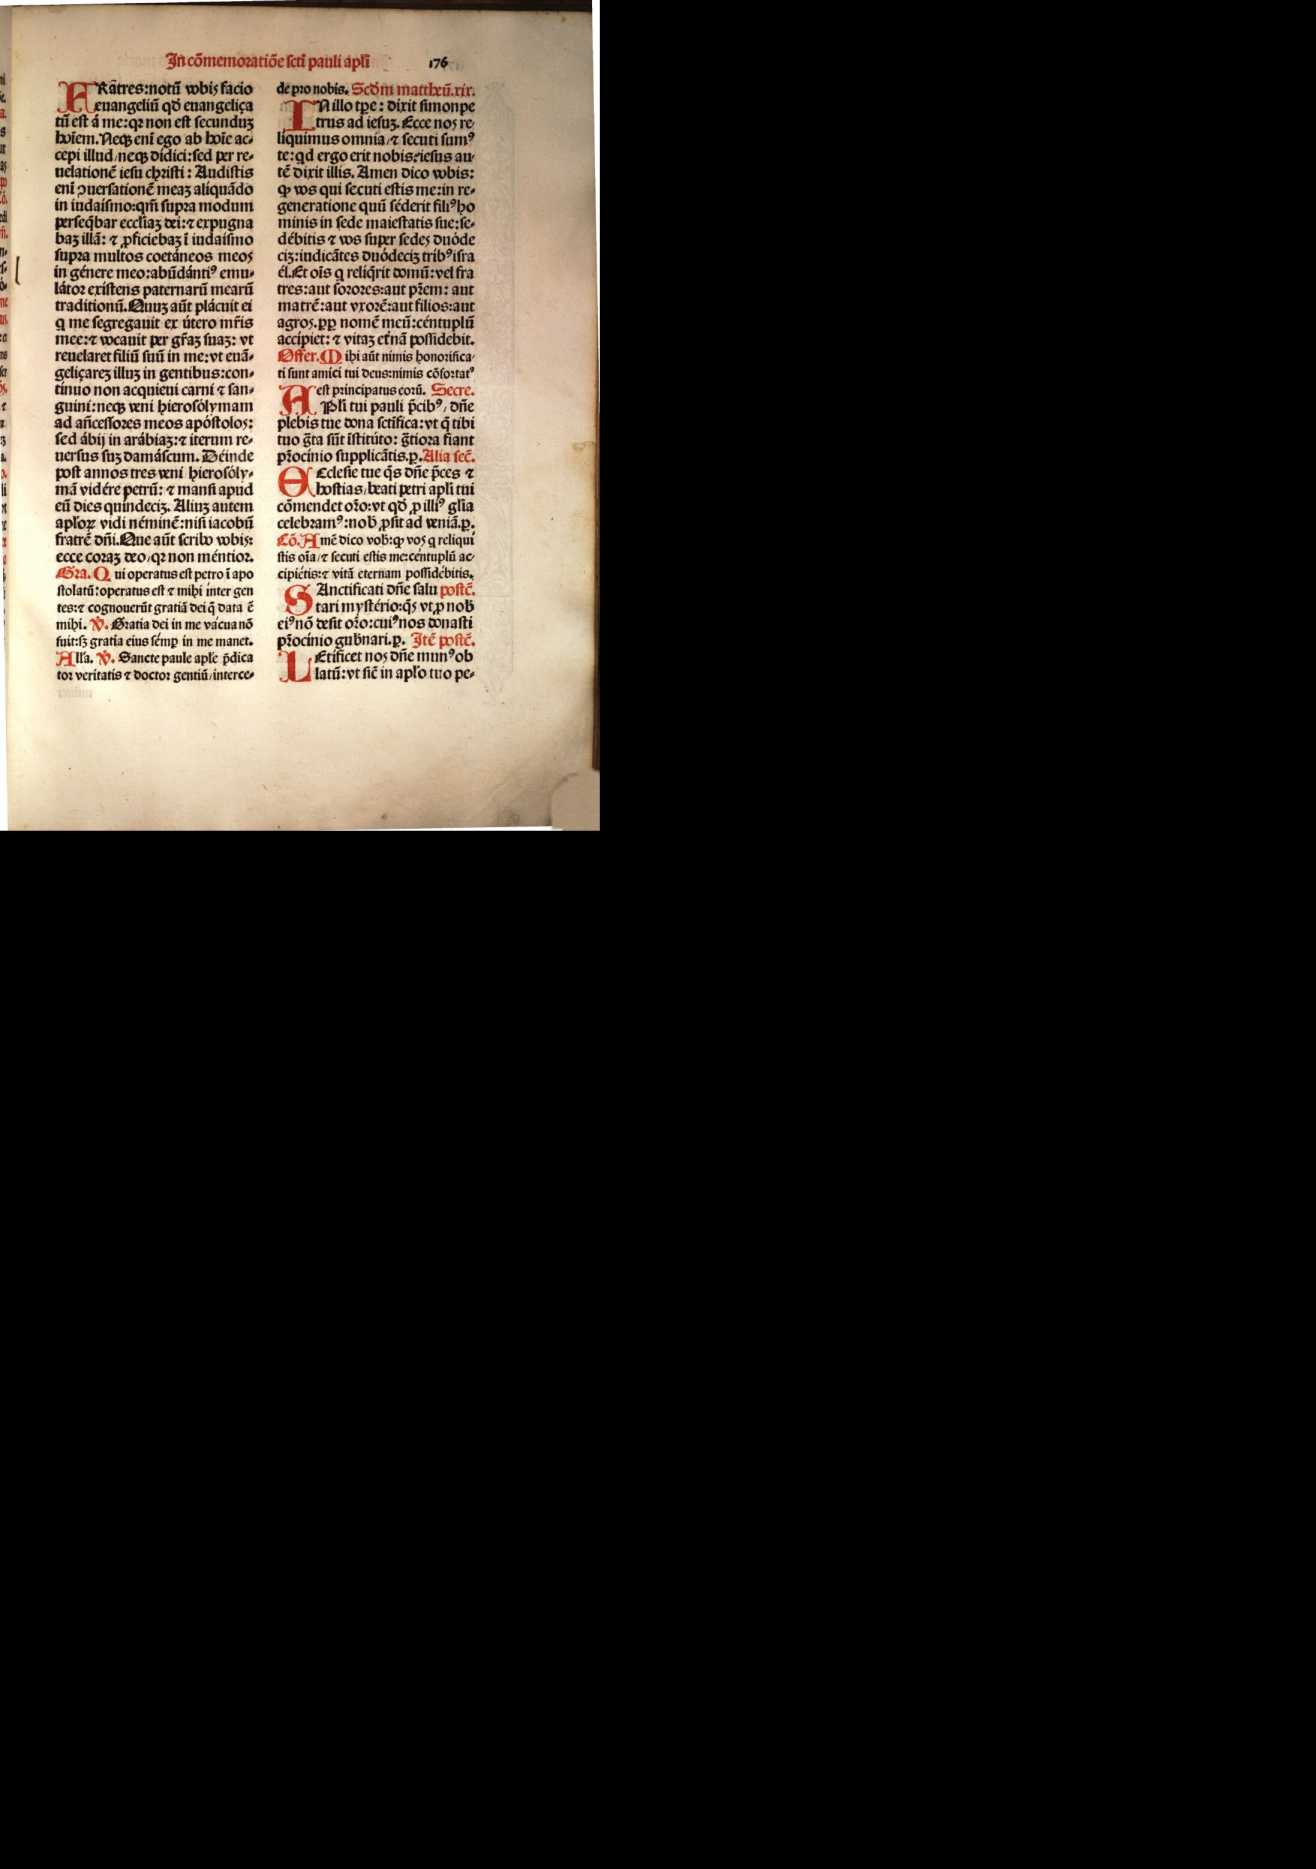 In cõmemoratiõe scti pauli apłi 176
FRatres:notũ vobiꝫ facio
euangeliũ qđ euangeliça
tũ est á me:qꝛ non est secunduꝫ
hoĩem. Neqꝫ enĩ ego ab hoĩe ac-
cepi illud/neqꝫ dídici:sed per re-
uelationẽ iesu christi: Audistis
enĩ ꝯuersationẽ meaꝫ aliquãdo
in iudaísmo:qm̃ supra modum
perseq̃bar eccl̃iaꝫ dei:⁊ expugna
baꝫ illã: ⁊ ꝓficiebaꝫ ĩ iudaísmo
supra multos coetáneos meos
in génere meo:abũdánti⁹ emu-
látor exístens paternarũ mearũ
traditionũ. Quuꝫ aũt plácuit ei
q me segregauit ex útero mr̃is
mee:⁊ vocauit per gr̃aꝫ suaꝫ: vt
reuelaret filiũ suũ in me:vt euã-
geliçareꝫ illuꝫ in gentibus:con-
tínuo non acquieui carni ⁊ san-
guini:neqꝫ veni hierosólymam
ad añcessores meos apóstolos:
sed ábij in arábiaꝫ:⁊ iterum re-
uersus suꝫ damáscum. Déinde
post annos tres veni hierosóly-
mã vidére petrũ: ⁊ mansi apud
eũ dies quíndeciꝫ. Aliuꝫ autem
apl̃oꝝ vidi néminẽ:nisi iacobũ
fratrẽ dñi. Que aũt scribo vobis:
ecce coraꝫ deo/qꝛ non méntior.
Gra. Qui operatus est petro ĩ apo
stolatũ:operatus est ⁊ mihi ínter gen
tes:⁊ cognouerũt gratiã dei q̃ data ẽ
mihi. ℣. Gratia dei in me vácua nõ
fuit:sꝫ gratia eius sémꝑ in me manet.
All'a. ℣. Sancte paule apl̃e p̃dica
tor veritatis ⁊ doctor gentiũ/interce-
de pro nobis. Scđm matthęũ.xix.
IN illo tꝑe: dixit simonpe
trus ad iesuꝫ. Ecce nos re-
líquimus omnia/⁊ secuti sum⁹
te:qd ergo erit nobis:iesus au-
tẽ dixit illis. Amen dico vobis:
ꝙ vos qui secuti estis me:in re-
generatione quũ séderit fili⁹ ho
minis in sede maiestatis sue:se-
débitis ⁊ vos super sedes duóde
ciꝫ:iudicãtes duódeciꝫ trib⁹ isra
él. Et oĩs q reliq̃rit domũ:vel fra
tres:aut sorores:aut pr̃em: aut
matrẽ:aut vxorẽ:aut filios:aut
agros.ꝓp nomẽ meũ:céntuplũ
accípiet: ⁊ vitaꝫ et̃nã possidebit.
Offer. Mihi aũt nimis honorifica-
ti sunt amíci tui deus:nimis cõfortat⁹
est principatus eorũ. Secre.
APl̃i tui pauli p̃cib⁹/ dñe
plebis tue dona sctĩfica:vt q̃ tibi
tuo g̃ta sũt ĩstitúto: g̃tiora fiant
pr̃ocinio supplicãtis.ꝑ. Alia sec̃.
ECclesie tue q̃s dñe p̃ces ⁊
hostias/beati petri apl̃i tui
cõmendet or̃o:vt qđ ꝓ illi⁹ gl̃ia
celebram⁹:nob̃ ꝓsit ad veniã.ꝑ.
Cõ. Amẽ dico vob̃:ꝙ vos q reliqui
stis oĩa/⁊ secuti estis me:céntuplũ ac-
cipiétis:⁊ vitã eternam possidébitis.
SAnctificati dñe salu postc̃.
tari mystério:q̃s vt ꝓ nob̃
ei⁹ nõ desit or̃o:cui⁹ nos donasti
pr̃ocinio gub̃nari.ꝑ. Itẽ postc̃.
LEtificet nos dñe mun⁹ ob
latũ:vt sic̃ in apl̃o tuo pe-